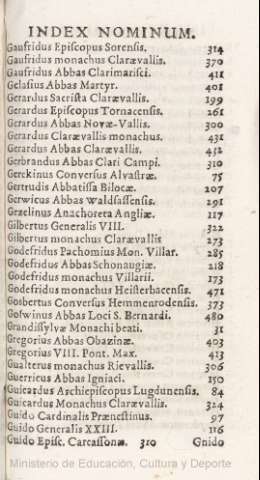 INDEX NOMINUM.
Gaufridus Episcopus Sorensis. 314
Gaufridus monachus Clarævallis. 370
Gaufridus Abbas Clarimarisci. 411
Gelasius Abbas Martyr. 401
Gerardus Sacrista Clarævallis. 199
Gerardus Episcopus Tornacensis. 261
Gerardus Abbas Novæ-Vallis. 300
Gerardus Clarævallis monachus. 431
Gerardus Abbas Clarævallis. 452
Gerbrandus Abbas Clari Campi. 310
Gerekinus Conversus Alvastræ. 75
Gertrudis Abbatissa Bilocæ. 207
Gerwicus Abbas Waldsassensis. 291
Gezelinus Anachoreta Angliæ. 117
Gilbertus Generalis VIII. 322
Gilbertus monachus Clarævallis 273
Godefridus Pachomius Mon. Villar. 285
Godefridus Abbas Schonaugiæ. 218
Godefridus monachus Villarii. 173
Godefridus monachus Heisterbacensis. 471
Gosbertus Conversus Hemmenrodensis. 373
Goswinus Abbas Loci S. Bernardi. 480
Grandissylvæ Monachi beati. 31
Gregorius Abbas Obazinæ. 403
Gregorius VIII. Pont. Max. 413
Gualterus monachus Rievallis. 306
Guerricus Abbas Igniaci. 150
Guicardus Archiepiscopus Lugdunensis. 84
Guicardus Monachus Clarævallis. 324
Guido Cardinalis Prænestinus. 97
Guido Generalis XXIII. 116
Guido Episc. Carcassonæ. 310 Guido
Ministerio de Educación, Cultura y Deporte